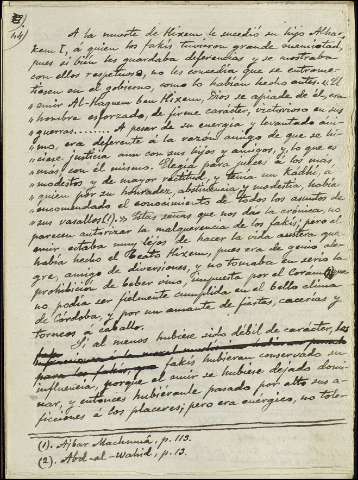 44)
A la muerte de Hixem le sucedió su hijo Alha-
kem I, á quien los fakís tuvieron grande enemistad,
pues si bien les guardaba deferencias y se mostraba
con ellos respetuoso, no les concedía que se entrome-
tiesen en el gobierno, como lo habían hecho antes. «El
"amir Al-Haquem ben Hixem, Dios se apiade de él, era
"hombre esforzado, de firme carácter, victorioso en sus
"guerras........ A pesar de su energía y levantado áni-
"mo, era deferente á la razón amigo de que se hi-
"ciese justicia aun con sus hijos y amigos, y lo que es
"mas con él mismo. Elegía para jueces á los más
"modestos y de mayor rectitud, y tenía un kadhi, a
"quien por su honradez, abstinencia y modestia, había
"encomendado el conocimiento de todos los asuntos de
"sus vasallos (1).» Estas señas que nos da la crónica, no
parecen autorizar la malquerencia de los fakís; pero el
emir estaba muy lejos de hacer la vida austera que
había hecho el beato Hixem, pues era de genio ale-
gre, amigo de diversiones, y no tomaba en serio la
prohibición de beber vino, impuesta por el Corán, que
no podía ser fielmente cumplida en el bello clima
de Córdoba, y por un amante de fiestas, cacerías y
torneos á caballo.
Si al menos hubiese sido débil de carácter, los
fakís hubieran conservado su
influencia, porque el emir se hubiese dejado domi-
nar, y entonces hubiéranle pasado por alto sus a-
ficiones á los placeres; pero era enérgico, no toler
(1). Ajbar Machmuá, p. 113.
(2). Abd-al-Wahid, p. 13.